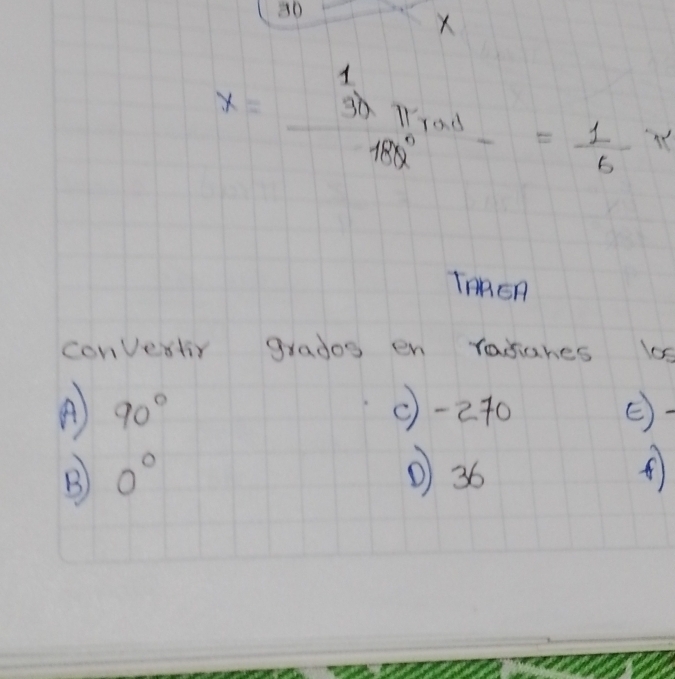 30
x
x = 1
30 π rad
180° = 1/6 π
TAREA
convertir grados en radianes los
A) 90° C) -270 E) -
B) 0° D) 36 F)